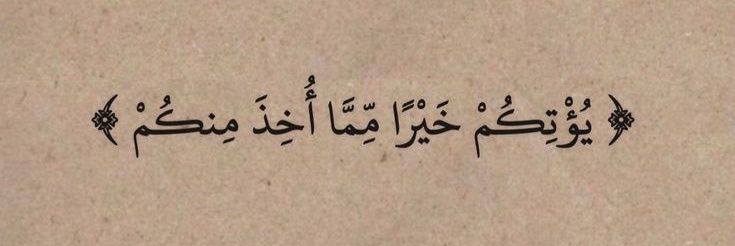 ﴿ يُؤْتِكُمْ خَيْرًا مِّمَّا أُخِذَ مِنكُمْ ﴾